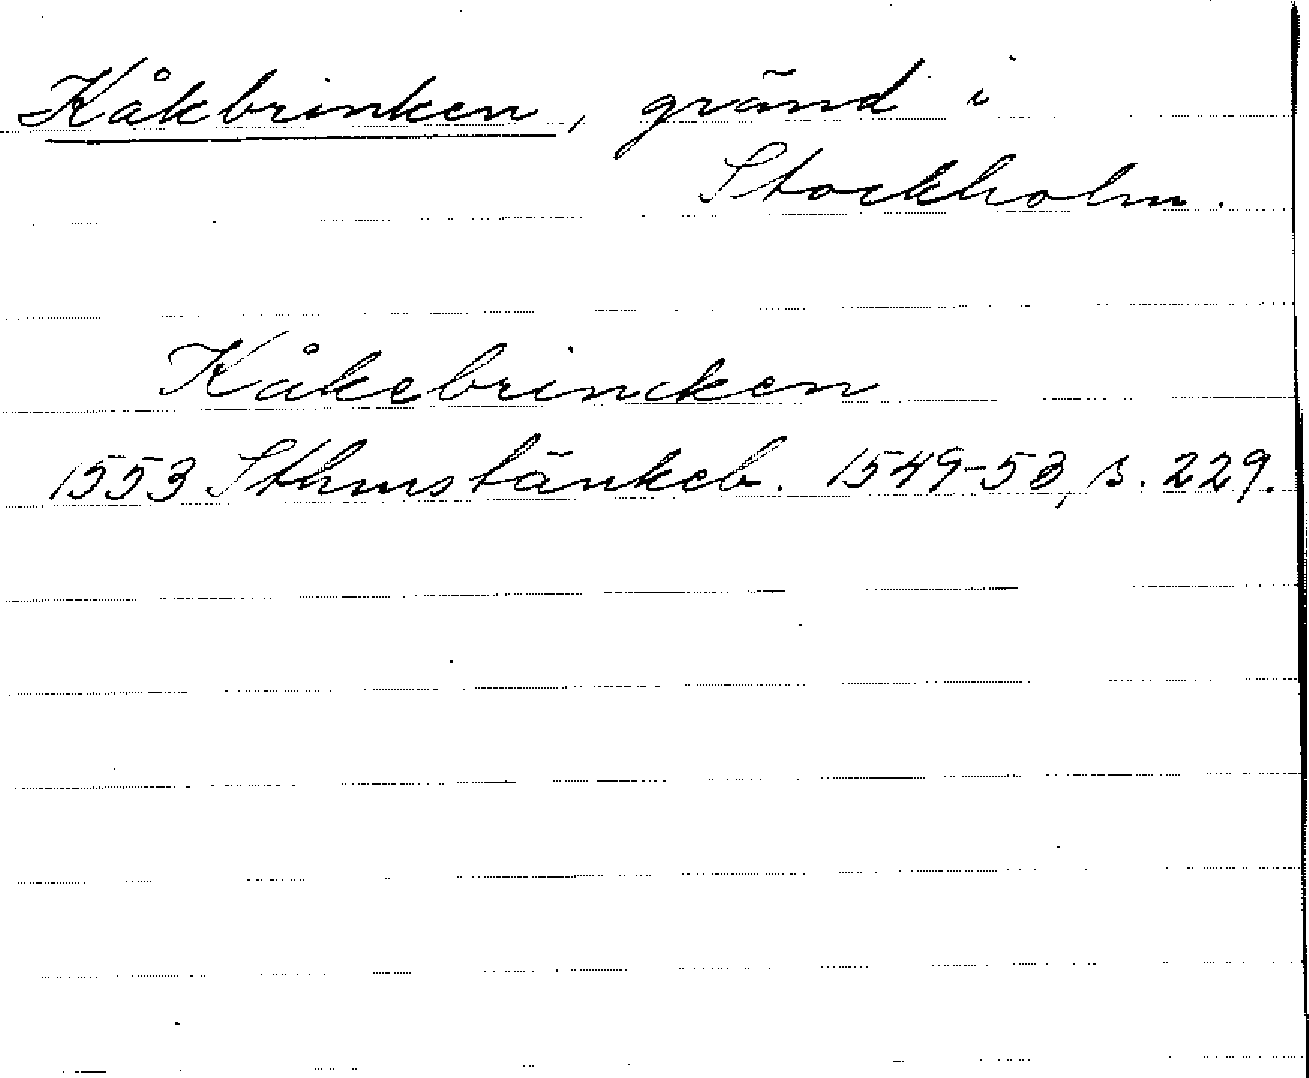 Kåkbrinken, gränd i
Stockholm.
Kåkebrincken
1553 Sthmstänkeb. 1549-53, s. 229.